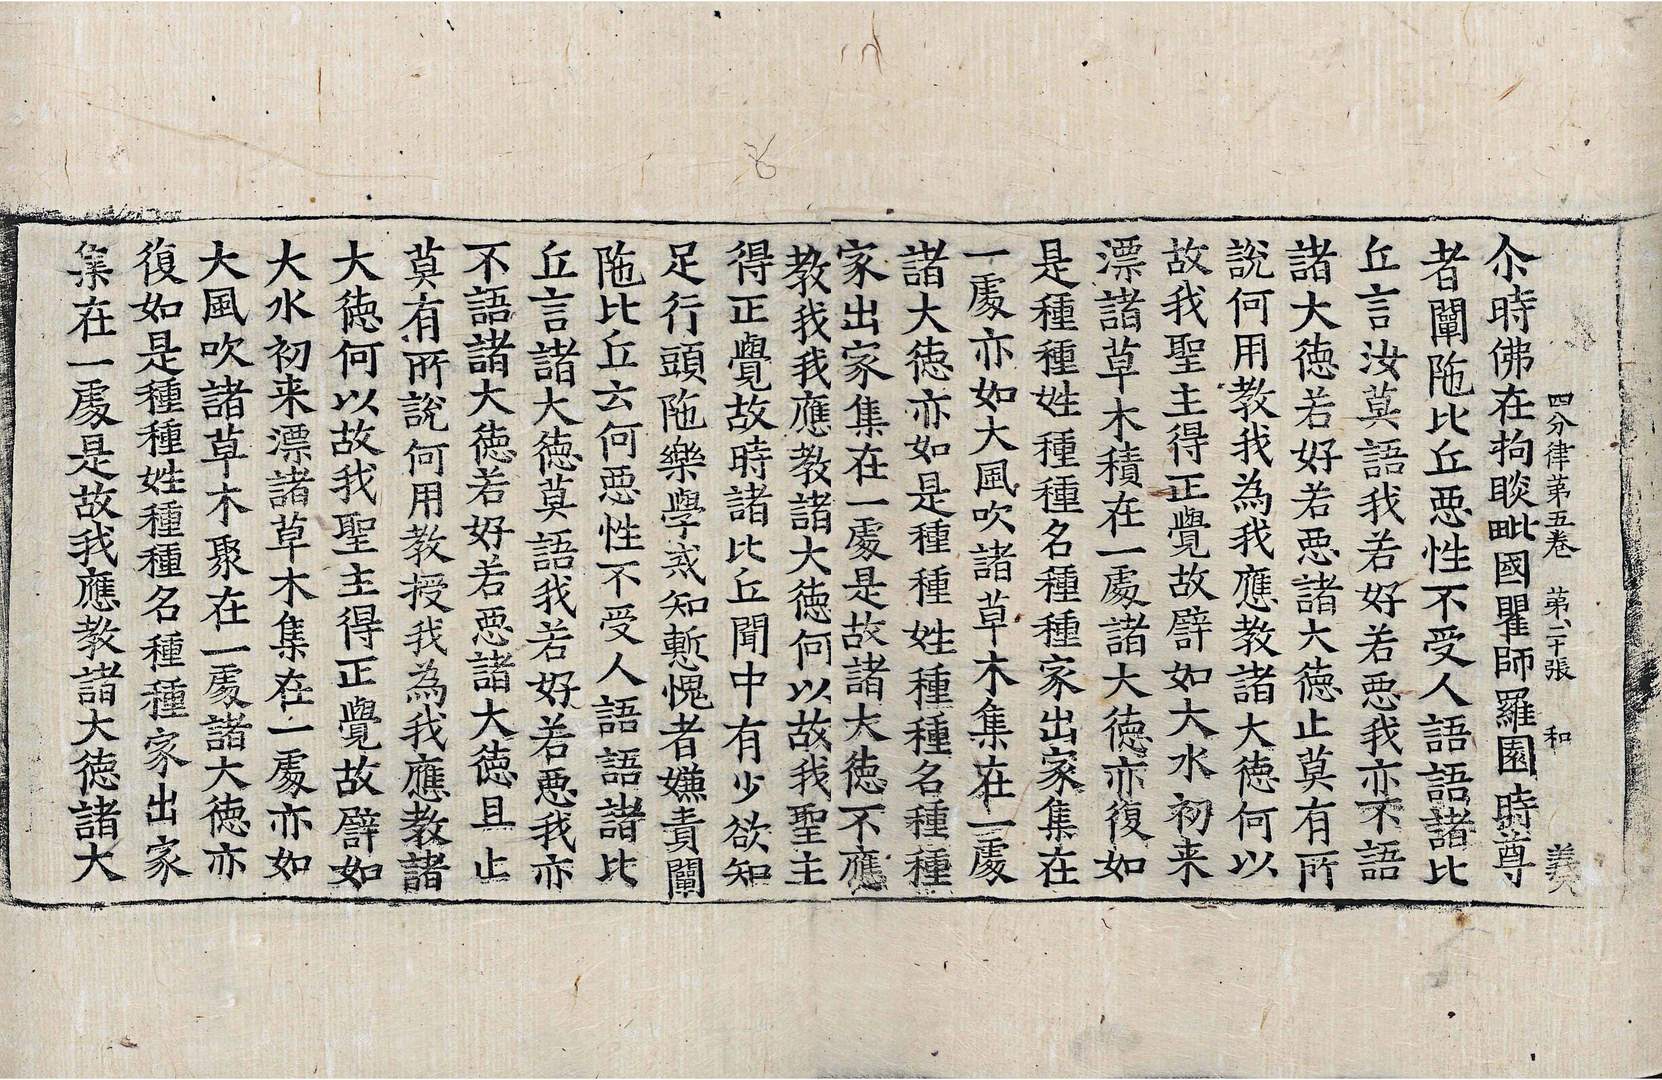 四分律第五卷 第二十張 和 義
尒時佛在拘睒毗國瞿師羅園時尊
者闡陁比丘惡性不受人語語諸比
丘言汝莫語我若好若惡我亦不語
諸大徳若好若惡諸大徳止莫有所
說何用教我為我應教諸大徳何以
故我聖主得正覺故譬如大水初来
漂諸草木積在一處諸大徳亦復如
是種種姓種種名種種家出家集在
一處亦如大風吹諸草木集在一處
諸大徳亦如是種種姓種種名種種
家出家集在一處是故諸大徳不應
教我我應教諸大徳何以故我聖主
得正覺故時諸比丘聞中有少欲知
足行頭陁樂學戒知慙愧者嫌責闡
陁比丘云何惡性不受人語語諸比
丘言諸大徳莫語我若好若惡我亦
不語諸大徳若好若惡諸大徳且止
莫有所說何用教授我為我應教諸
大徳何以故我聖主得正覺故譬如
大水初来漂諸草木集在一處亦如
大風吹諸草木聚在一處諸大徳亦
復如是種種姓種種名種種家出家
集在一處是故我應教諸大徳諸大